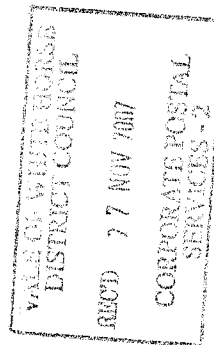 VALE OF WHITE HORSE
DISTRICT COUNCIL
REC'D 27 NOV 2007
CORPORATE POSTAL
SERVICES - 2